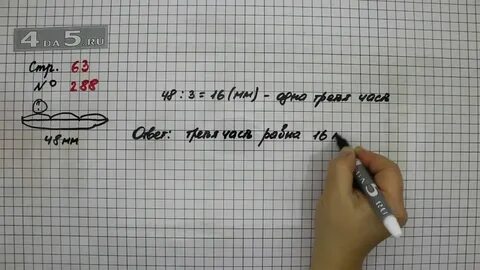 4DA5.RU
Стр. 63
№ 288
48 мм
48 : 3 = 16 (мм) - одна третья часть
Ответ: третья часть равна 16
4DA5.RU